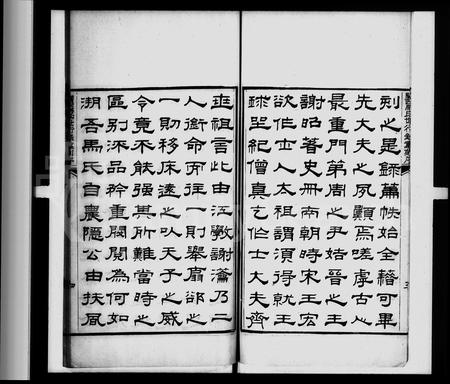 刻之是篇帙始全藉可畢
先大夫之夙願焉嗟虖古人
最重門第周之尹姞晉之王
謝昭著史冊南朝時宋王宏
欲作士人太祖謂須得就王
球紀僧真乞作士大夫齊
世祖言此由江斆謝瀹乃二
人銜命而往一則舉扇卻之
一則移床遠之以天子之威
令竟不能强其所難當時之
區别流品矜重閥閱為何如
溯吾馬氏自農隱公由扶風